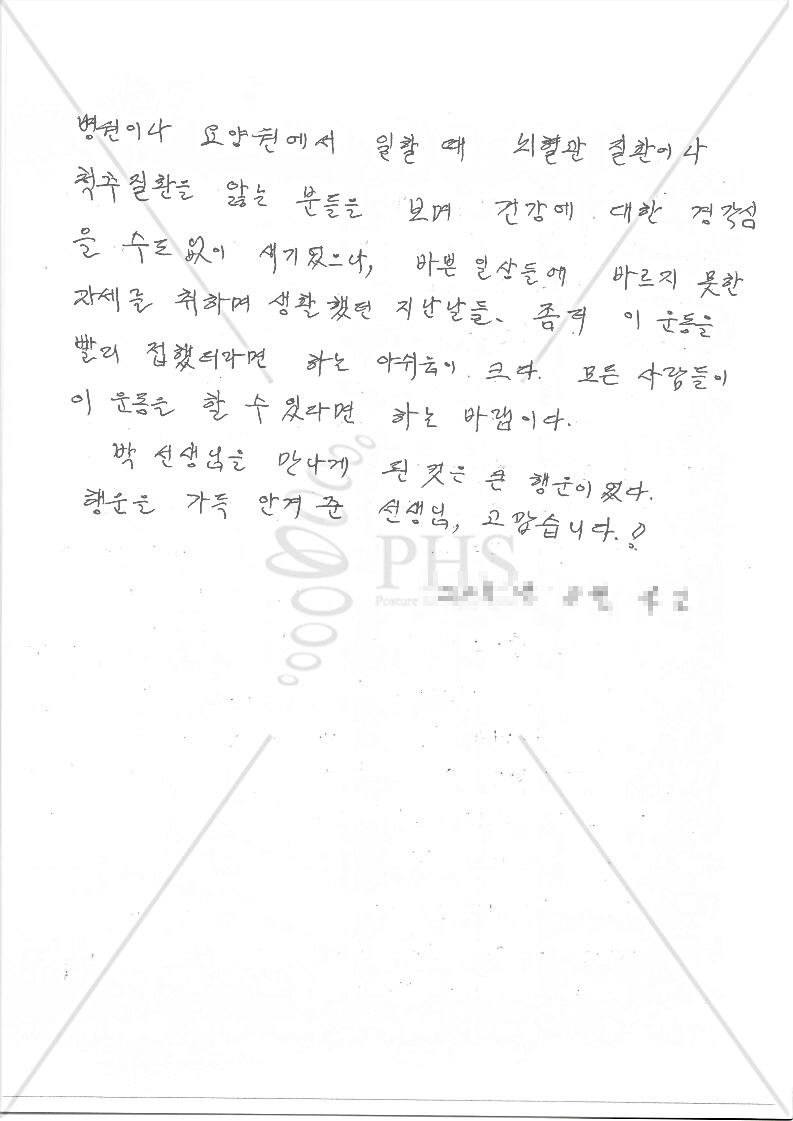 병원이나 요양원에서 일할 때 뇌혈관 질환이나
척추질환을 앓는 분들을 보며 건강에 대한 경각심
을 수도 없이 새기었으나, 바쁜 일상들에 바르지 못한
자세를 취하며 생활했던 지난날들. 좀더 이 운동을
빨리 접했더라면 하는 아쉬움이 크다. 모든 사람들이
이 운동을 할 수 있다면 하는 바램이다.
박 선생님을 만나게 된 것은 큰 행운이었다.
행운을 가득 안겨 준 선생님, 고맙습니다.
PHS
Posture